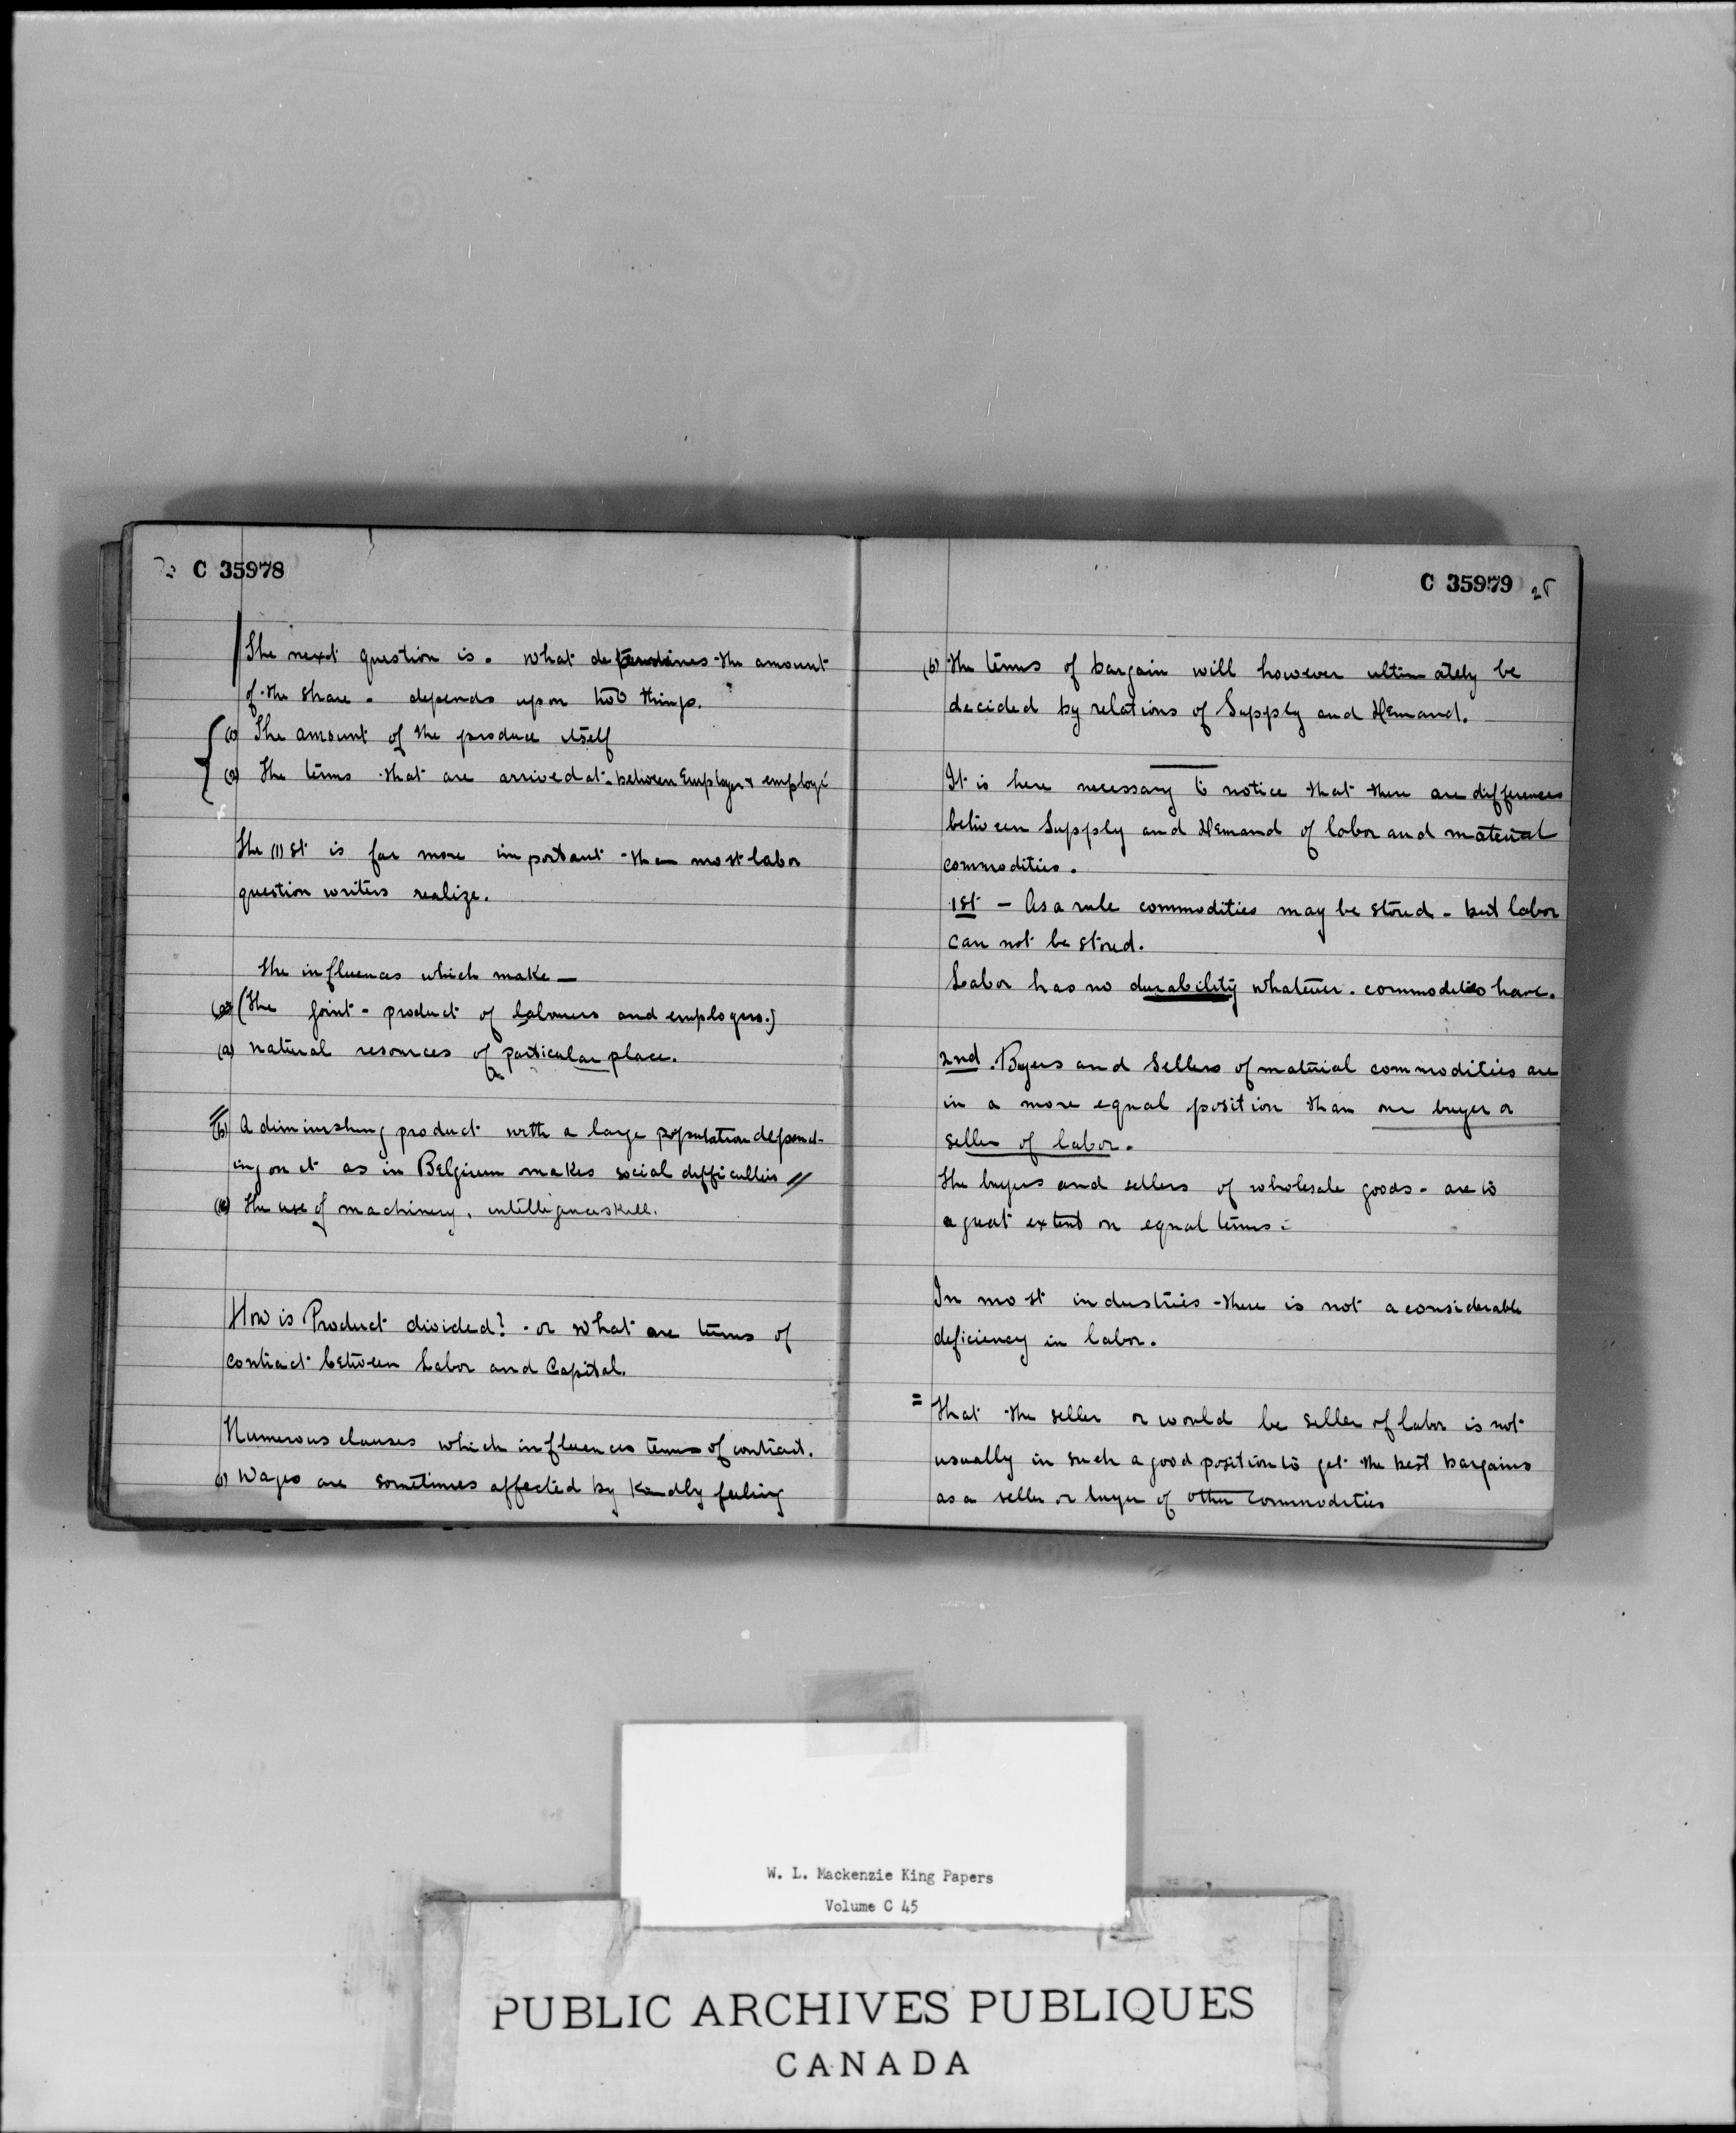 C 35978
The next question is. What determines the amount
of the share - depends upon two things.
(1) The amount of the produce itself
(2) The terms that are arrived at. between Employer & employé
The (1) st is far more important than most labor
question writers realize.
The influences which make —
(The joint - product of labourers and employers.)
(a) natural resources of particular place.
(b) A diminishing product with a large population depend-
ing on it as in Belgium makes social difficulties //
(c) The use of machinery, intelligence skill.
How is Product divided? - or what are terms of
contract between Labor and Capital.
Numerous clauses which influences terms of contract.
(1) Wages are sometimes affected by Kindly feeling
C 35979
(b) The terms of bargain will however ultimately be
decided by relations of Supply and Demand.
It is here necessary to notice that there are differences
between Supply and Demand of labor and material
commodities.
1st - As a rule commodities may be stored - but labor
can not be stored.
Labor has no durability whatever. commodities have.
2nd. Buyers and Sellers of material commodities are
in a more equal position than our buyer or
seller of labor.
The buyers and sellers of wholesale goods - are to
a great extent on equal terms -
In most industries - there is not a considerable
deficiency in labor.
= That the seller or would be seller of labor is not
usually in such a good position to get the best bargains
as a seller or buyer of other commodities
W. L. Mackenzie King Papers
Volume C 45
PUBLIC ARCHIVES PUBLIQUES
CANADA